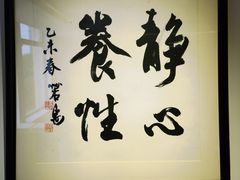 静心
养性
乙未春